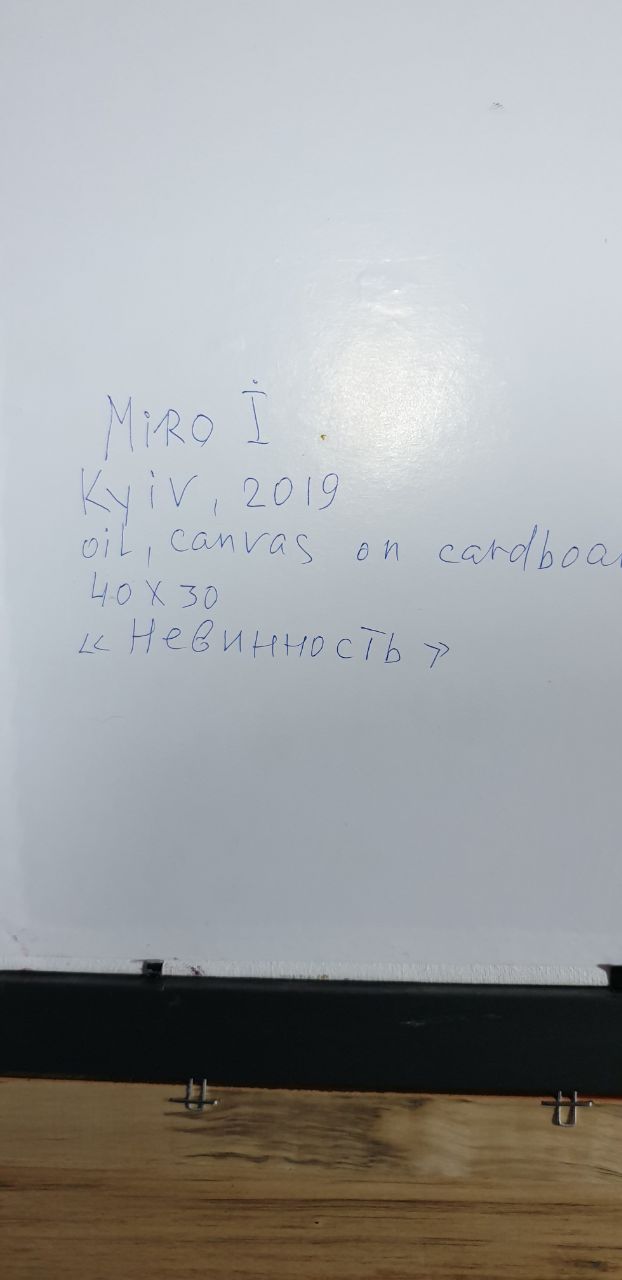 MiRO İ
Kyiv, 2019
oil, canvas on cardboa
40 X 30
« Невинность »